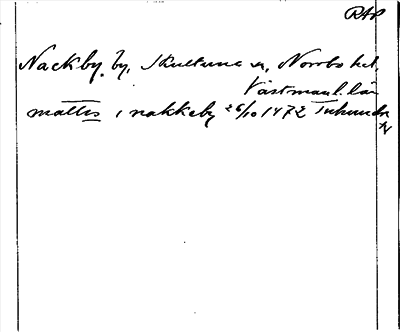 RAP
Nackby by, Skultuna sn, Norrbo hd,
Västmanl. län
mattis i nakkeby 26/10 1472 Tuhundra